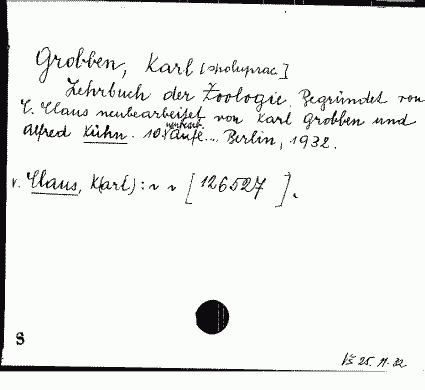 Grobben, Karl [spoluprac.]
Lehrbuch der Zoologie. Begründet von
C. Claus neubearbeitet von Karl Grobben und
Alfred Kühn. 10. neubearb. Aufl... Berlin, 1932.
v. Claus, K(arl): [126527].
S
Vš 25.11.32